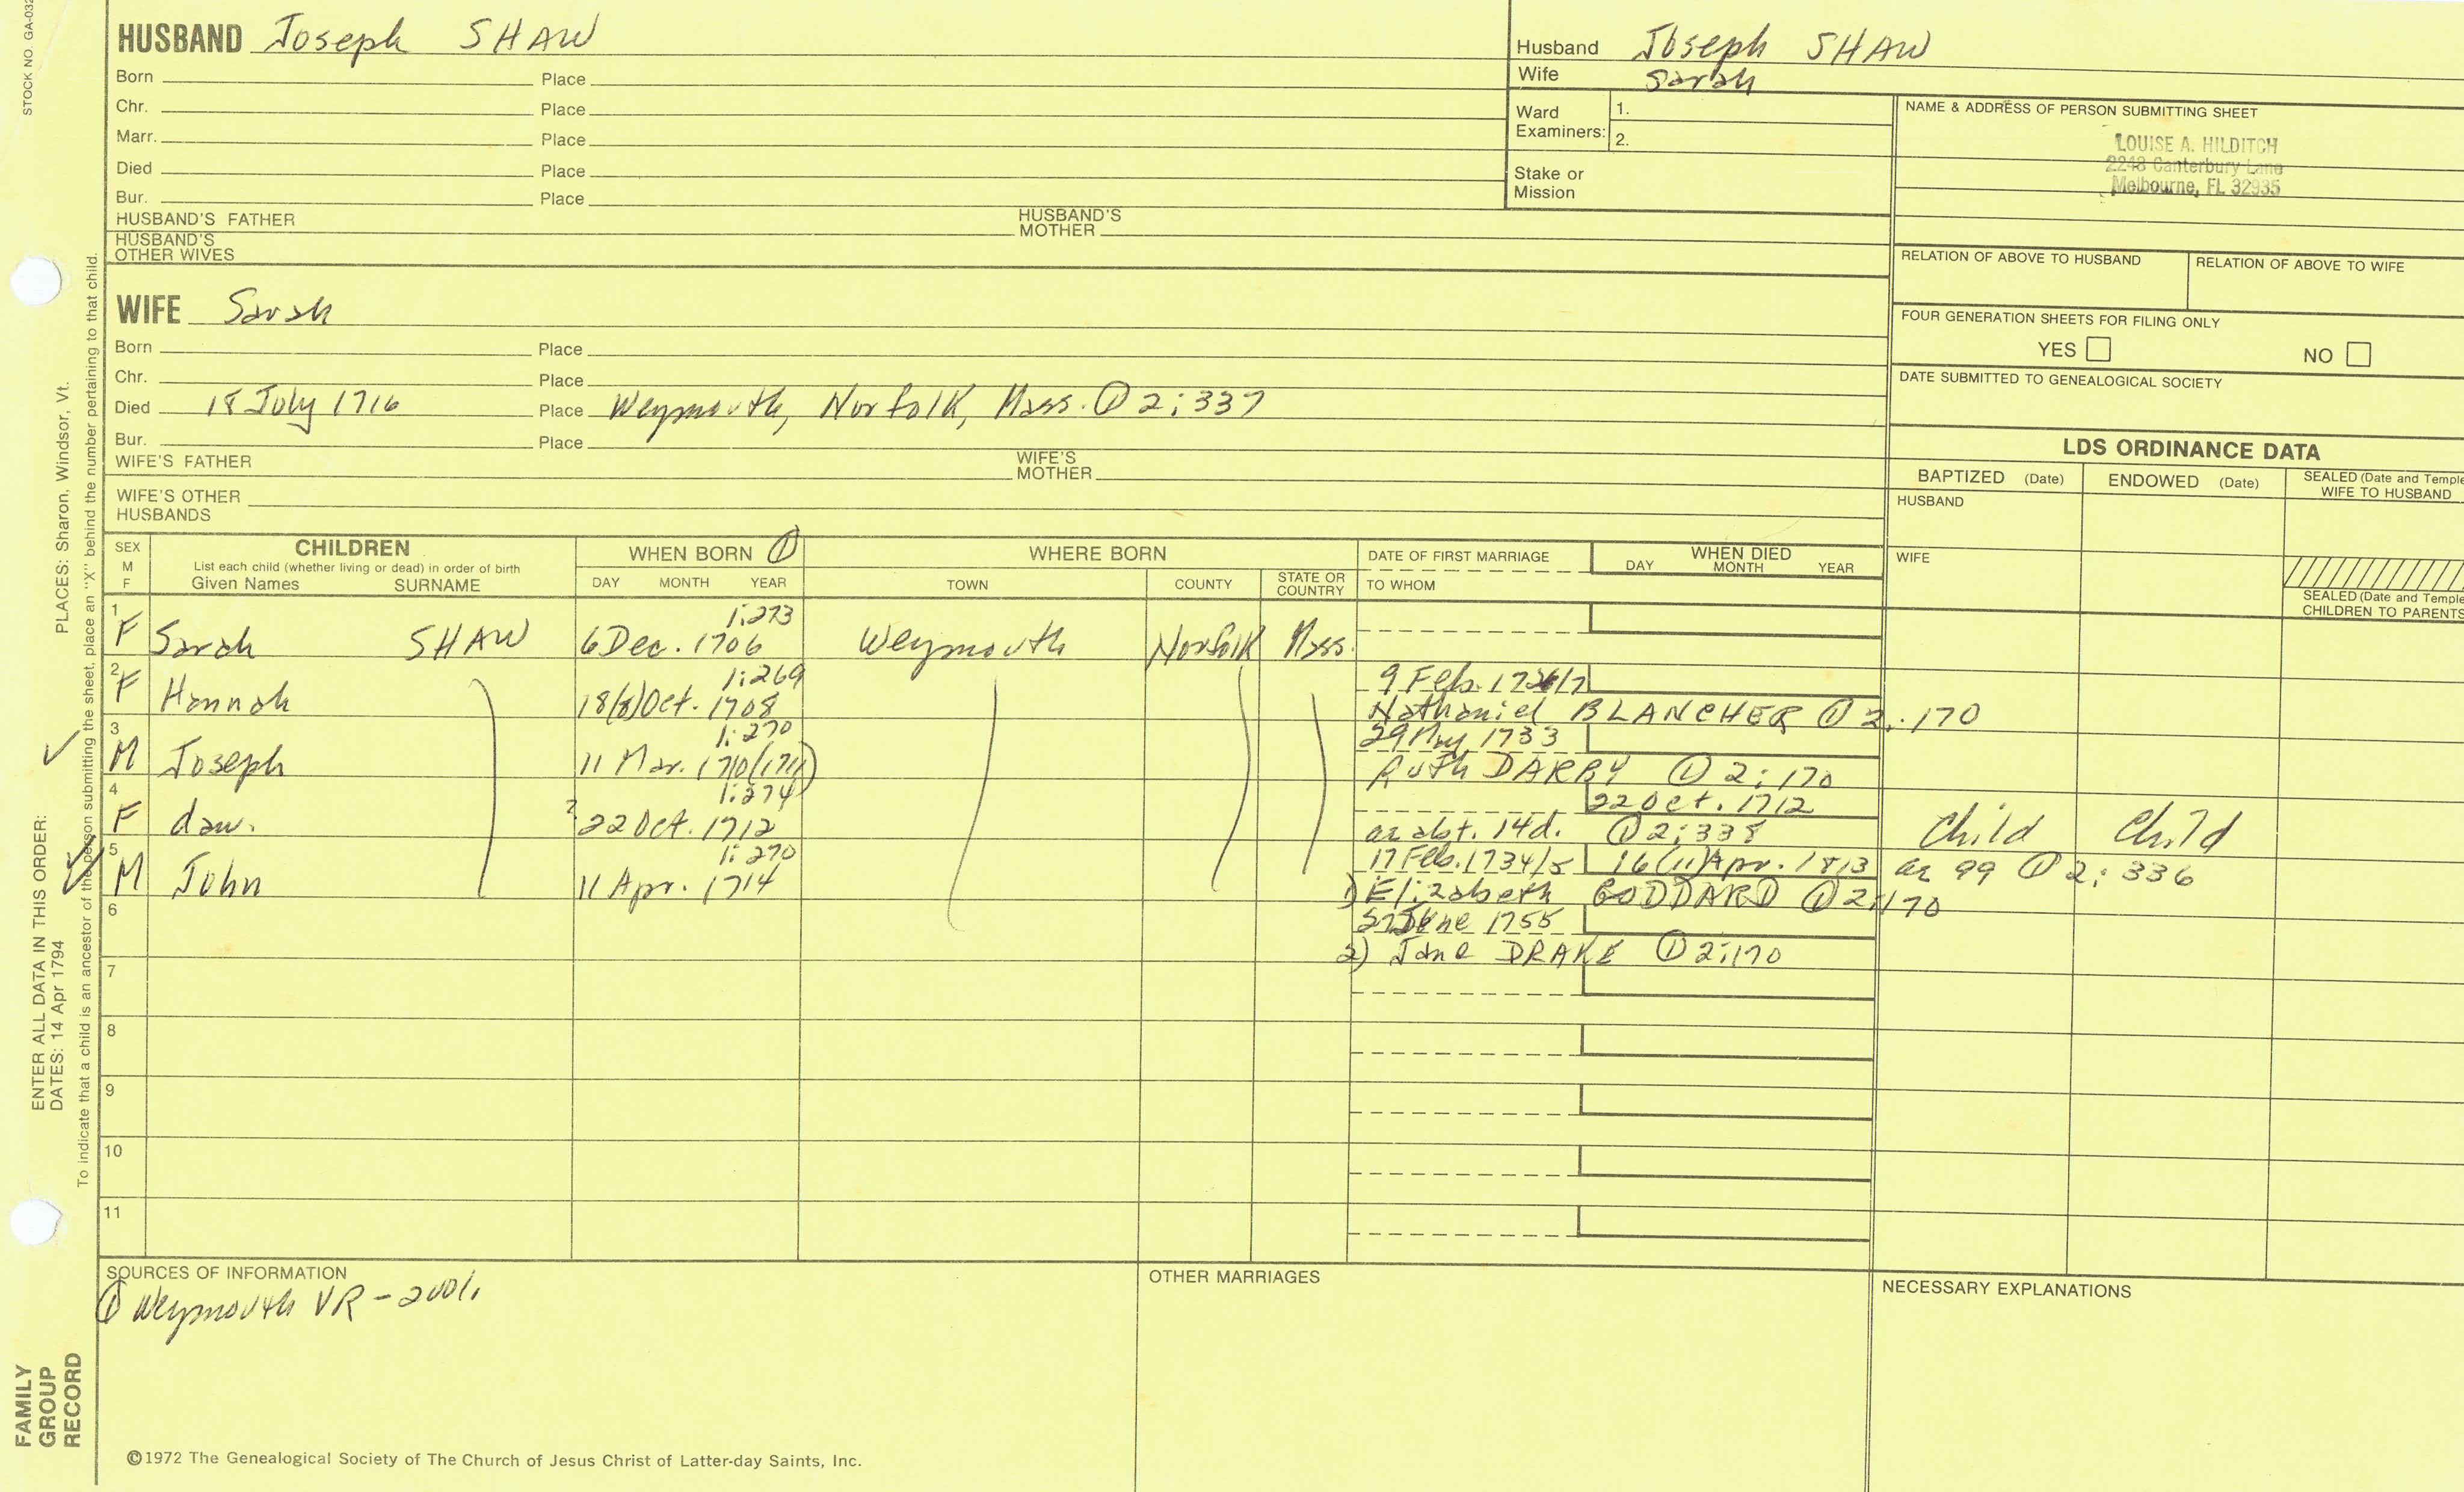 STOCK NO. GA-032
HUSBAND Joseph SHAW
Born Place
Chr. Place
Marr. Place
Died Place
Bur. Place
HUSBAND'S FATHER HUSBAND'S MOTHER
HUSBAND'S OTHER WIVES
Husband Joseph SHAW
Wife Sarah
Ward Examiners: 1.
2.
Stake or Mission
NAME & ADDRESS OF PERSON SUBMITTING SHEET
LOUISE A. HILDITCH
2248 Canterbury Lane
Melbourne, FL 32935
RELATION OF ABOVE TO HUSBAND RELATION OF ABOVE TO WIFE
FOUR GENERATION SHEETS FOR FILING ONLY
YES NO
DATE SUBMITTED TO GENEALOGICAL SOCIETY
WIFE Sarah
Born Place
Chr. Place
Died 18 July 1716 Place Weymouth, Norfolk, Mass. ① 2:337
Bur. Place
WIFE'S FATHER WIFE'S MOTHER
WIFE'S OTHER HUSBANDS
LDS ORDINANCE DATA
BAPTIZED (Date) ENDOWED (Date) SEALED (Date and Temple
WIFE TO HUSBAND
HUSBAND
WIFE
SEALED (Date and Temple
CHILDREN TO PARENTS
SEX
M
F
CHILDREN
List each child (whether living or dead) in order of birth
Given Names SURNAME
WHEN BORN ①
DAY MONTH YEAR
WHERE BORN
TOWN COUNTY STATE OR COUNTRY
DATE OF FIRST MARRIAGE
TO WHOM
WHEN DIED
DAY MONTH YEAR
1 1:273
F Sarah SHAW 6 Dec. 1706 Weymouth Norfolk Mass.
2 1:269 9 Feb. 1726/7
F Hannah 18(8) Oct. 1708 Nathaniel BLANCHER ① 2:170
3 1:270 29 May 1733
M Joseph 11 Mar. 1710(1711) Ruth DARBY ① 2:170
4 1:274 22 Oct. 1712
F dau. ? 22 Oct. 1712 ae abt. 14d. ① 2:338 Child Child
5 1:270 17 Feb. 1734/5 16(11) Apr. 1813 ae 99 ① 2:336
M John 11 Apr. 1714 1) Elizabeth GODDARD ① 2:170
6 June 1755
2) Jane DRAKE ① 2:170
7
8
9
10
11
SOURCES OF INFORMATION
① Weymouth VR - 2vol.
OTHER MARRIAGES
NECESSARY EXPLANATIONS
©1972 The Genealogical Society of The Church of Jesus Christ of Latter-day Saints, Inc.
FAMILY
GROUP
RECORD
ENTER ALL DATA IN THIS ORDER:
DATES: 14 Apr 1794
PLACES: Sharon, Windsor, Vt.
To indicate that a child is an ancestor of the person submitting the sheet, place an "X" behind the number pertaining to that child.